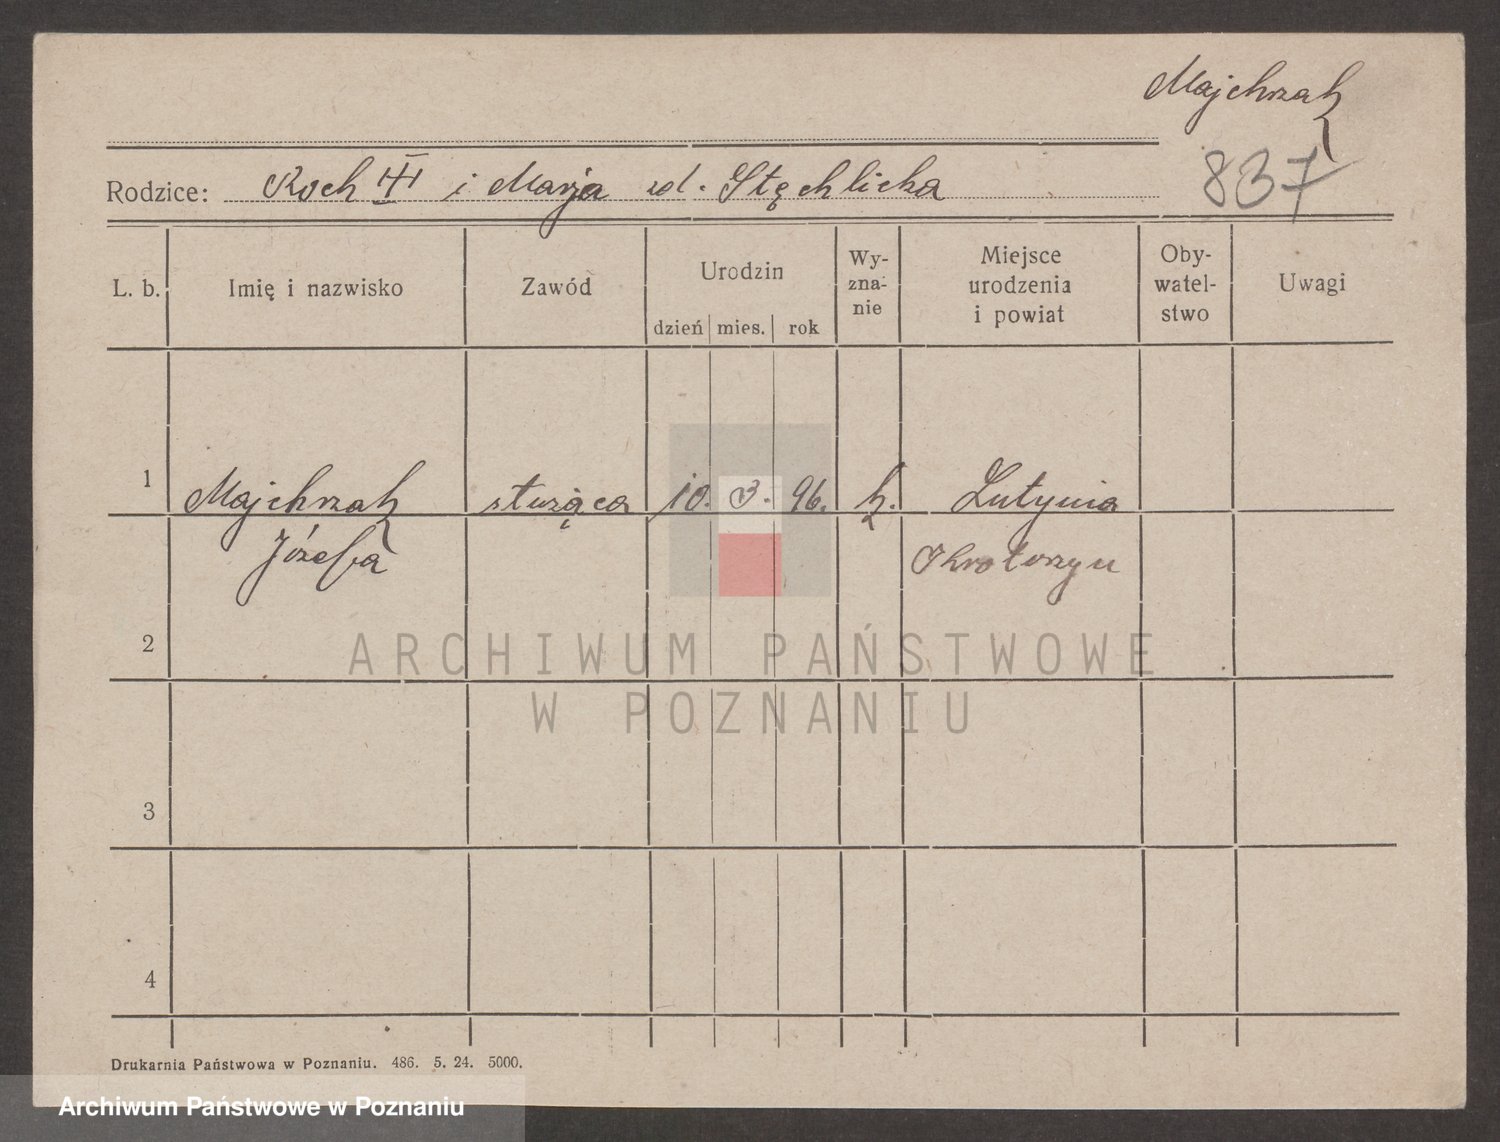 Majchrzak
837
Rodzice: Roch III i Marja zd. Stęchlicka
L. b. Imię i nazwisko Zawód Urodzin Wy-znanie Miejsce urodzenia i powiat Oby-watel-stwo Uwagi
dzień mies. rok
1 Majchrzak służąca 10. 3. 96. k. Lutynia
Józefa Krotoszyn
2
ARCHIWUM PAŃSTWOWE
W POZNANIU
3
4
Drukarnia Państwowa w Poznaniu. 486. 5. 24. 5000.
Archiwum Państwowe w Poznaniu